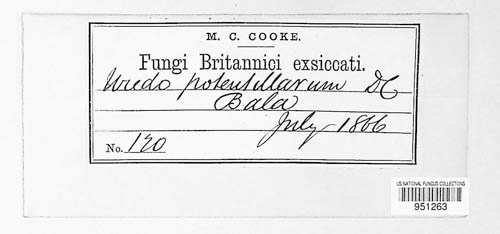 M. C. COOKE.
Fungi Britannici exsiccati.
Uredo potentillarum DC
Bala
July 1866
No. 120
US NATIONAL FUNGUS COLLECTIONS
951263